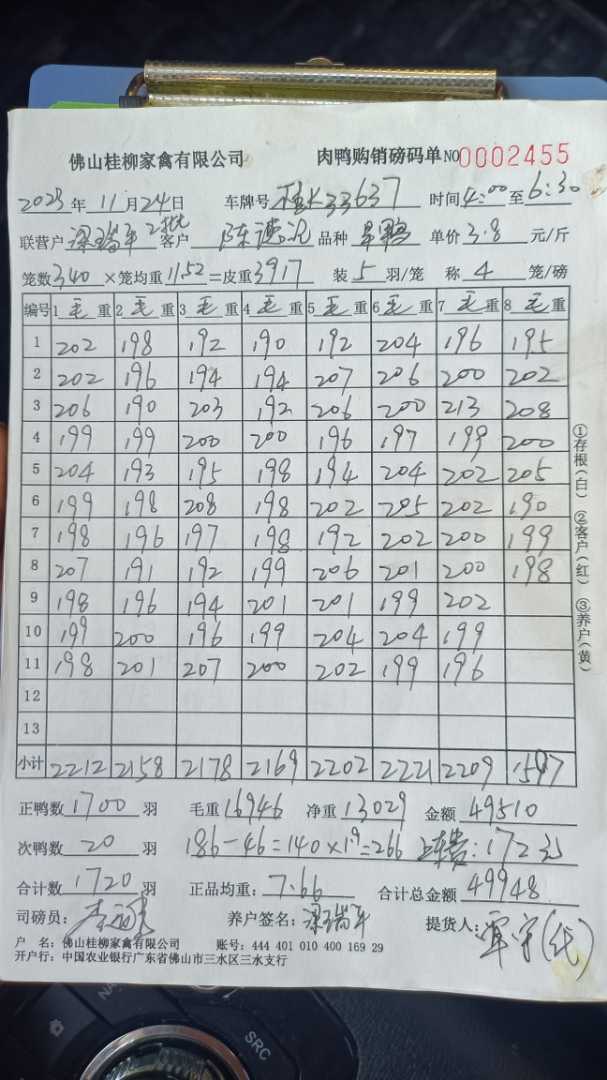 佛山桂柳家禽有限公司 肉鸭购销磅码单 NO 0002455
2023年 11月24日 车牌号 桂K33637 时间 4:00 至 6:30
联营户 梁瑞平 2批 客户 陈德 品种 单价 3.8 元/斤
笼数 340 ×笼均重 11.52 =皮重 3917 装 5 羽/笼 称 4 笼/磅
编号 1 毛 重 2 毛 重 3 毛 重 4 毛 重 5 毛 重 6 毛 重 7 毛 重 8 毛 重
1 202 198 192 190 192 204 196 195
2 202 196 194 194 207 206 200 202
3 206 190 203 192 206 200 213 208
4 199 199 200 200 196 197 199 200
5 204 193 195 198 194 204 202 205
6 199 198 208 198 202 205 202 190
7 198 196 197 198 192 202 200 199
8 207 191 192 199 206 201 200 198
9 198 196 194 201 201 199 202
10 199 200 196 199 204 204 199
11 198 201 207 200 202 199 196
12
13
小计 2212 2158 2178 2169 2202 2221 2209 1597
正鸭数 1700 羽 毛重 16946 净重 13029 金额 49510
次鸭数 20 羽 186-46=140×19=266 172元
合计数 1720 羽 正品均重: 7.66 合计总金额 49948
司磅员: 养户签名: 梁瑞平 提货人: (代)
户 名: 佛山桂柳家禽有限公司 账号: 444 401 010 400 169 29
开户行: 中国农业银行广东省佛山市三水区三水支行
①存根(白) ②客户(红) ③养户(黄)
SRC